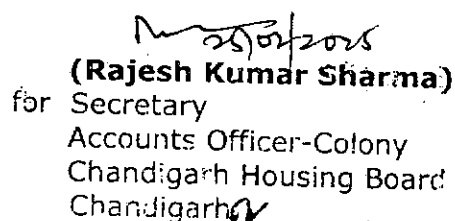 25/02/2025
(Rajesh Kumar Sharma)
for Secretary
Accounts Officer-Colony
Chandigarh Housing Board
Chandigarh